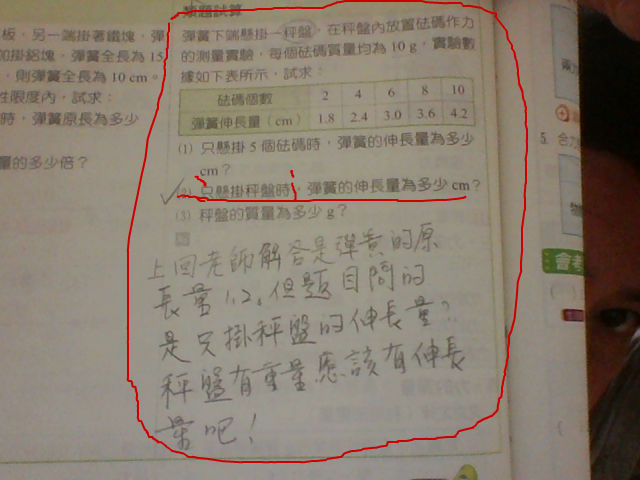 類題試算
板，另一端掛著鐵塊，彈
掛鋁塊，彈簧全長為15
，則彈簧全長為 10 cm。
性限度內，試求：
時，彈簧原長為多少
量的多少倍？
彈簧下端懸掛一秤盤，在秤盤內放置砝碼作力
的測量實驗，每個砝碼質量均為 10 g，實驗數
據如下表所示，試求：
砝碼個數 2 4 6 8 10
彈簧伸長量（cm） 1.8 2.4 3.0 3.6 4.2
(1) 只懸掛 5 個砝碼時，彈簧的伸長量為多少
cm？
(2) 只懸掛秤盤時，彈簧的伸長量為多少 cm？
(3) 秤盤的質量為多少 g？
上回老師解答是彈簧的原
長量1.2。但題目問的
是只掛秤盤的伸長量？
秤盤有重量應該有伸長
量吧！
5. 合力
會考